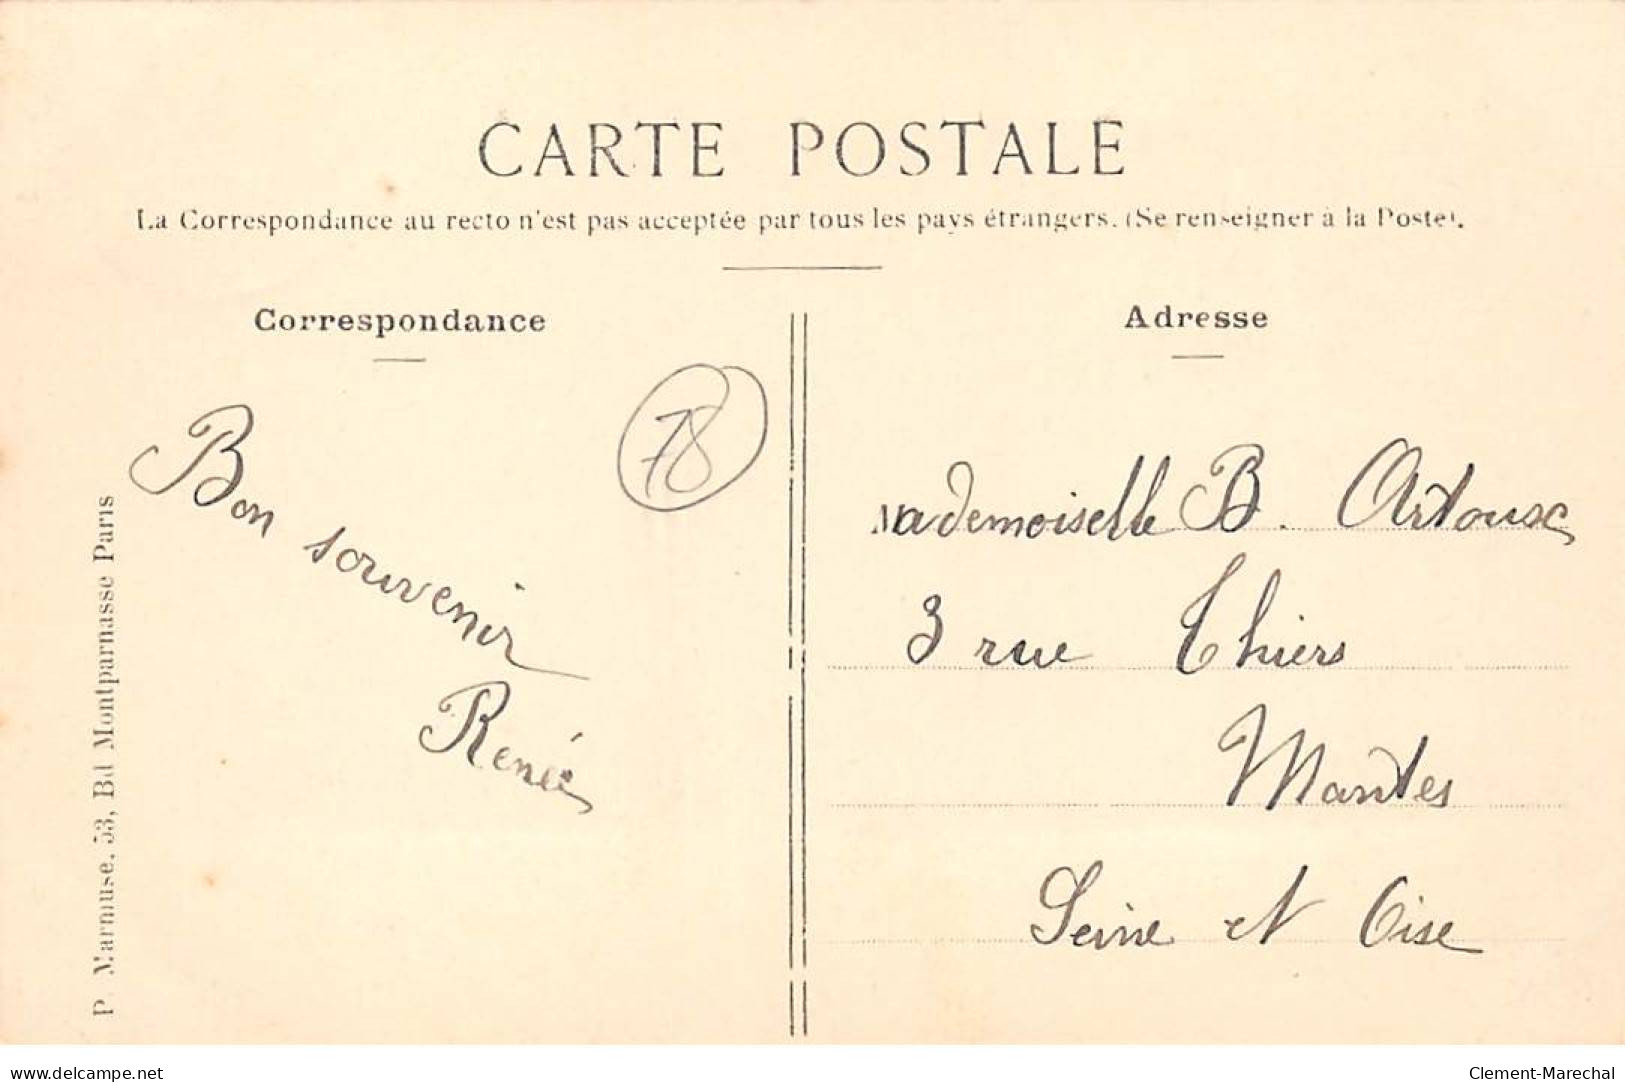 CARTE POSTALE
La Correspondance au recto n'est pas acceptée par tous les pays étrangers. (Se renseigner à la Poste).
Correspondance
78
Bon souvenir
Renée
P. Marmuse, 53, Bd Montparnasse Paris
Adresse
Mademoiselle B. Artoux
3 rue Thiers
Mantes
Seine et Oise
delcampe.net
Clement-Marechal